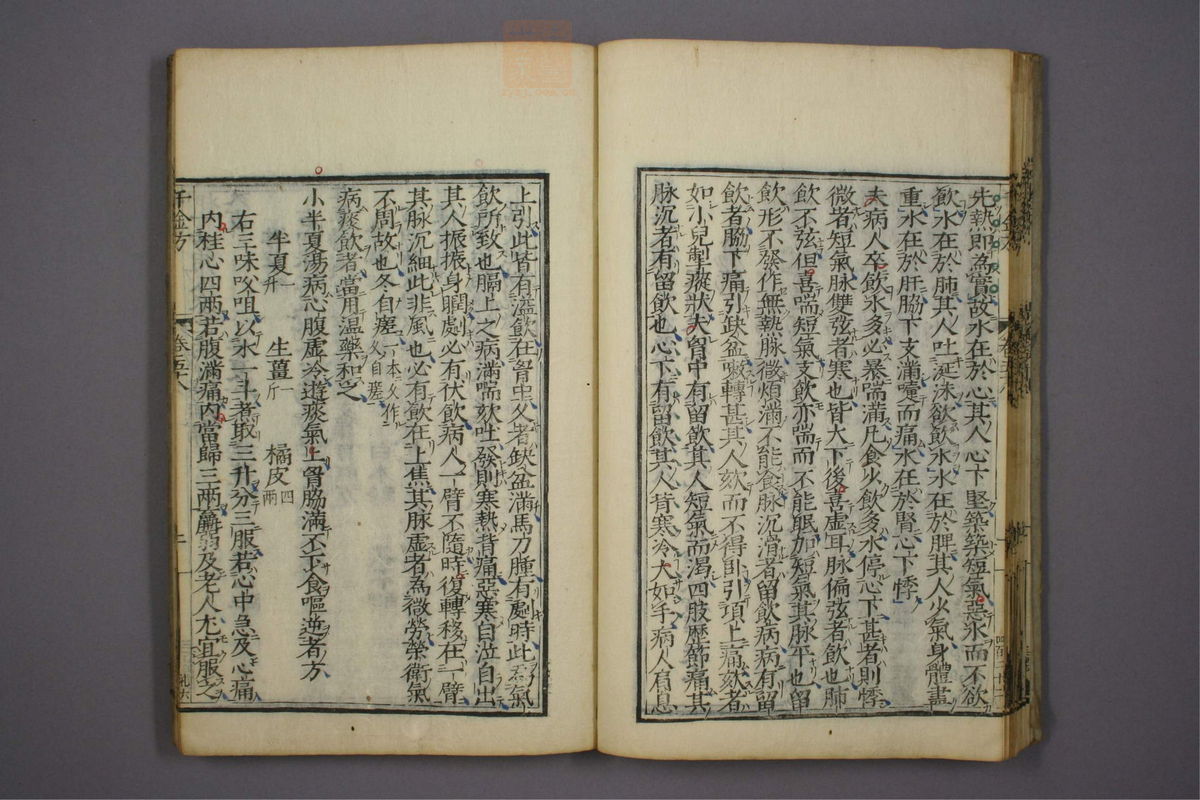 先熱即為實故水在於心其人心下堅築築短氣惡水而不欲
飲水在於肺其人吐涎沫欲飲水水在於脾其人少氣身體盡
重水在於肝脇下支滿嚏而痛水在於腎心下悸
夫病人卒飲水多必暴喘滿凡食少飲多水停心下甚者則悸
微者短氣脉雙弦者寒也皆大下後喜虛耳脉偏弦者飲也肺
飲不弦但喜喘短氣支飲亦喘而不能眠加短氣其脉平也留
飲形不發作無熱脉微煩滿不能食脉沉滑者留飲病病有留
飲者脇下痛引缺盆嗽轉甚其人欬而不得臥引項上痛欬者
如小兒掣瘲狀夫胷中有留飲其人短氣而渴四肢歷節痛其
脉沉者有留飲也心下有留飲其人背寒冷大如手病人有息
上引此皆有溢飲在胷中久者缺盆滿馬刀腫有處時此為氣
飲所致也膈上之病滿喘欬吐發則寒熱背痛惡寒目泣自出
其人振振身瞤劇必有伏飲病人一臂不隨時復轉移在一臂
其脉沉細此非風也必有飲在上焦其脉虛者為微勞榮衛氣
不周故也冬自瘥一本作久自瘥
病痰飲者當用温藥和之
小半夏湯病心腹虛冷遊痰氣上胷脇滿不下食嘔逆者方
半夏一升 生薑一斤 橘皮四兩
右三味㕮咀以水一斗煮取三升分三服若心中急及心痛
内桂心四兩若腹滿痛内當歸三兩羸弱及老人尤宜服之
千金方